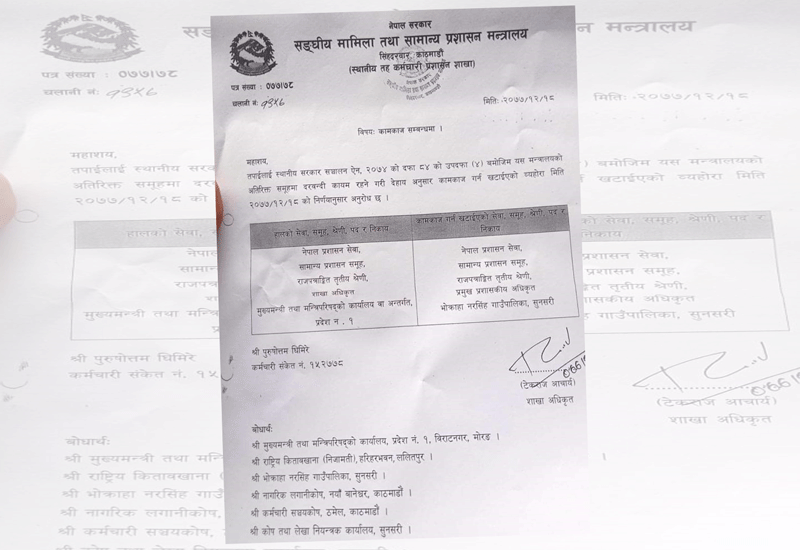 नेपाल सरकार
सङ्घीय मामिला तथा सामान्य प्रशासन मन्त्रालय
सिंहदरवार, काठमाडौं
(स्थानीय तह कर्मचारी प्रशासन शाखा)
पत्र संख्या : ०७७।७८
चलानी नं: १३५६
मिति: -२०७७/१२/१८
विषय: कामकाज सम्बन्धमा ।
महाशय,
तपाईलाई स्थानीय सरकार सञ्चालन ऐन, २०७४ को दफा ८४ को उपदफा (४) बमोजिम यस मन्त्रालयको
अतिरिक्त समूहमा दरबन्दी कायम रहने गरी देहाय अनुसार कामकाज गर्न खटाईएको व्यहोरा मिति
२०७७/१२/१८ को निर्णयानुसार अनुरोध छ ।
हालको सेवा, समूह, श्रेणी, पद र निकाय
कामकाज गर्न खटाईएको सेवा, समूह, श्रेणी, पद र
निकाय
नेपाल प्रशासन सेवा,
सामान्य प्रशासन समूह,
राजपत्राङ्कित तृतीय श्रेणी,
शाखा अधिकृत
मुख्यमन्त्री तथा मन्त्रिपरिषद्को कार्यालय वा अन्तर्गत,
प्रदेश नं . १
नेपाल प्रशासन सेवा,
सामान्य प्रशासन समूह,
राजपत्राङ्कित तृतीय श्रेणी,
प्रमुख प्रशासकीय अधिकृत
भोक्राहा नरसिंह गाउँपालिका, सुनसरी
श्री पुरुषोत्तम घिमिरे
कर्मचारी संकेत नं. १५२७७८
(टेकराज आचार्य)
शाखा अधिकृत
बोधार्थ:
श्री मुख्यमन्त्री तथा मन्त्रिपरिषद्को कार्यालय, प्रदेश नं. १, विराटनगर, मोरङ ।
श्री राष्ट्रिय कितावखाना (निजामती), हरिहरभवन, ललितपुर ।
श्री भोक्राहा नरसिंह गाउँपालिका, सुनसरी ।
श्री नागरिक लगानीकोष, नयाँ बानेश्वर, काठमाडौं ।
श्री कर्मचारी सञ्चयकोष, ठमेल, काठमाडौं ।
श्री कोष तथा लेखा नियन्त्रक कार्यालय, सुनसरी ।